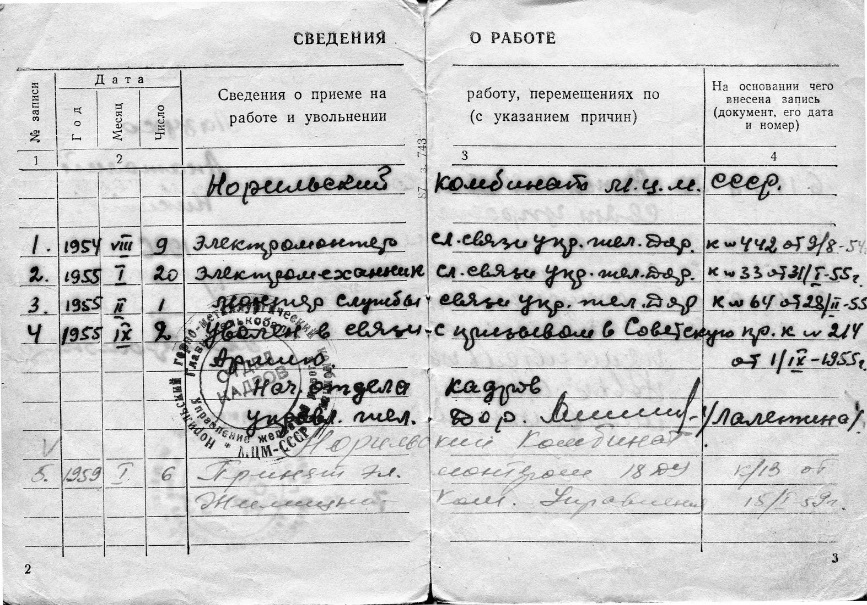 СВЕДЕНИЯ О РАБОТЕ
№ записи
Дата
Год
Месяц
Число
Сведения о приеме на работу, перемещениях по
работе и увольнении (с указанием причин)
На основании чего
внесена запись
(документ, его дата
и номер)
1 2 3 4
Норильский комбинат М.Ц.М. СССР.
1. 1954 VIII 9 Электромонтер сл. связи упр. жел. дор. к № 442 от 9/8-54
2. 1955 I 20 Электромеханник сл. связи упр. жел. дор. к № 33 от 31/I-55г
3. 1955 II 1 монтер службы связи упр. жел. дор к № 64 от 28/II-55
4 1955 IX 2 Уволен в связи с призывом в Советскую пр. к № 214
Армию от 1/IX-1955г.
Нач. отдела кадров
управл. жел. дор. /Лалетина/.
Норильский Комбинат
5. 1959 I 6 Принят эл. монтером к/13 от
Жилищно Ком. Управления 15/I 59г.
ОТДЕЛ
КАДРОВ
МЦМ-СССР
87 з. 743
2
3